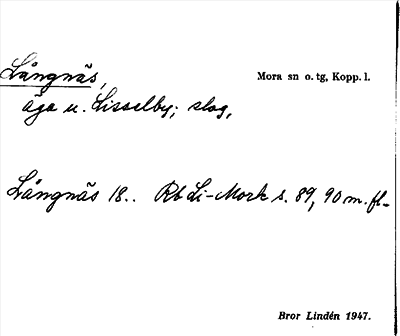 Långnäs, Mora sn o. tg, Kopp. l.
äga u. Lisselby; slog,
Långnäs 18.. Rb Li-Mork s. 89, 90 m. fl-
Bror Lindén 1947.